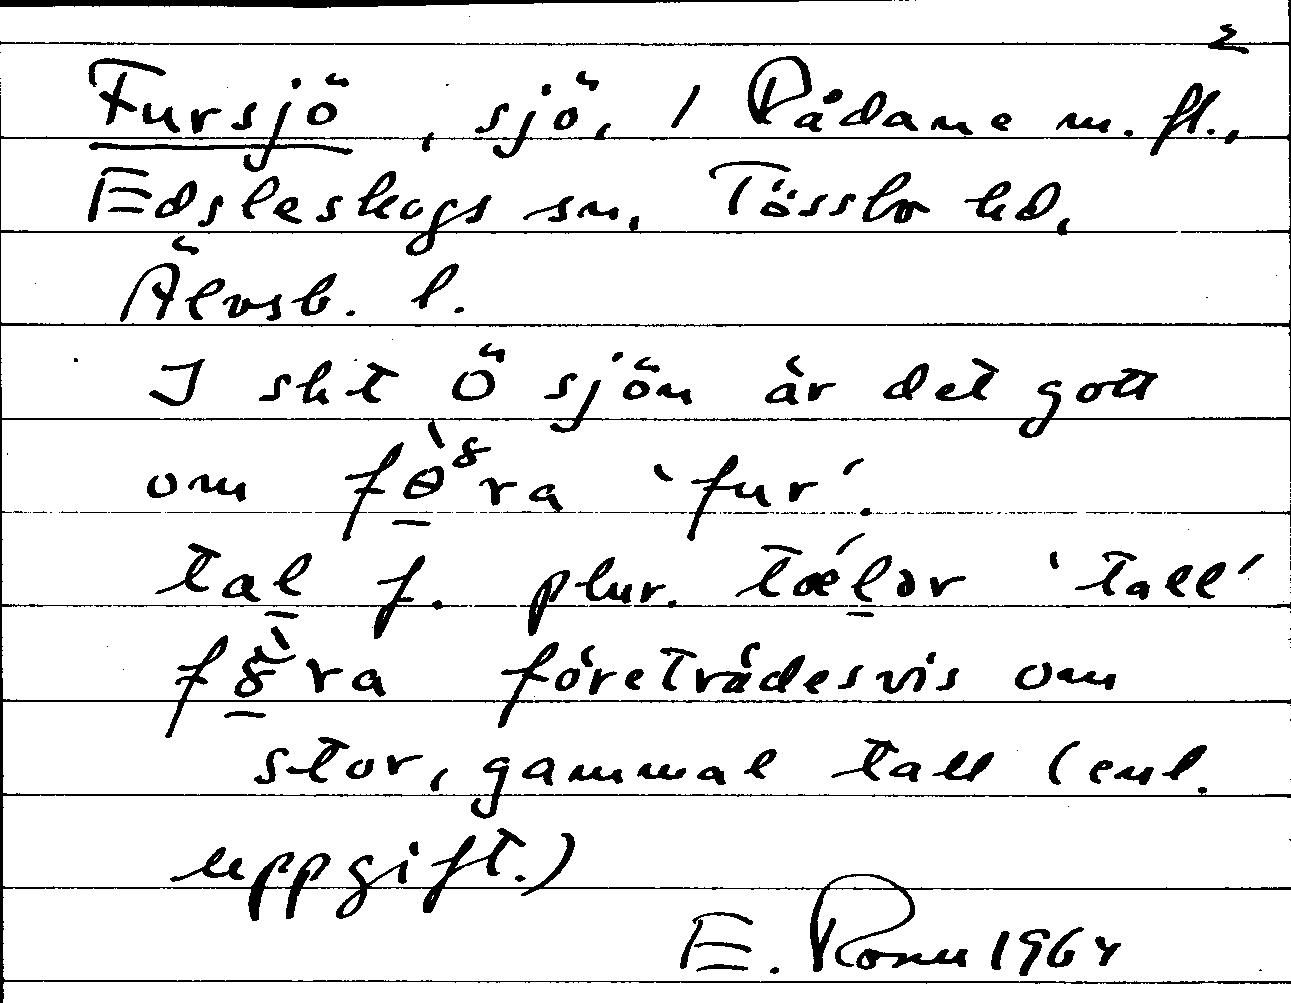 2
Fursjö, sjö, / Rådane m. fl.,
Edsleskogs sn, Tössbo hd,
Älvsb. l.
I skt Ö sjön är det gott
om fɵ̀ra 'fur'.
tal f. plur. tǽlər 'tall'
fɵ̀ra företrädesvis om
stor, gammal tall (enl.
uppgift.)
E. Ronn 1964